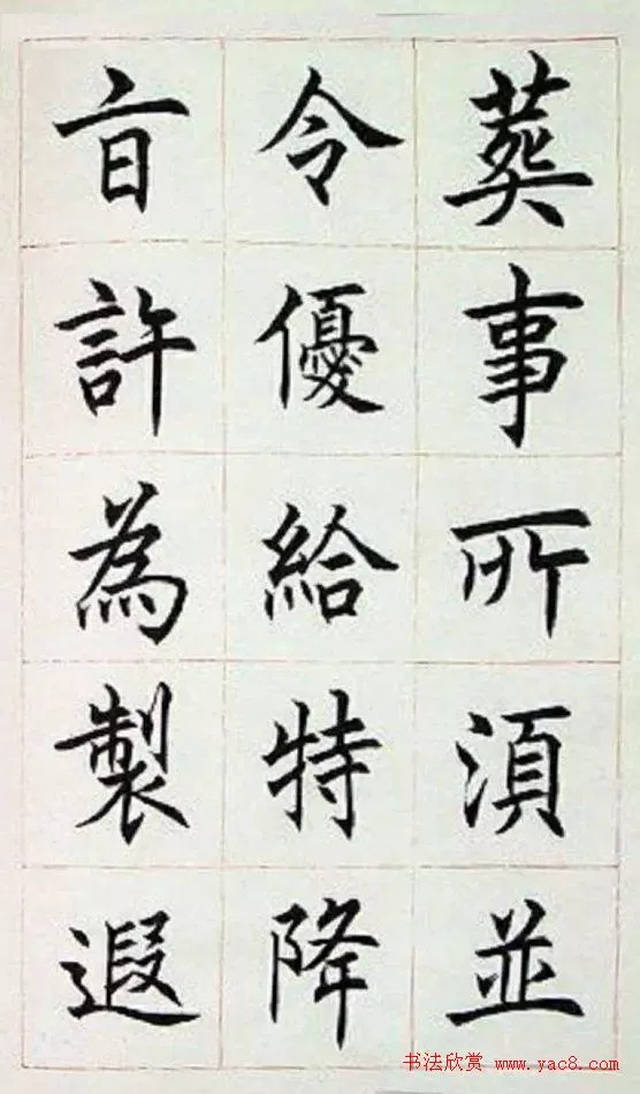 葬事所須並
令優給特降
旨許為製遐
书法欣赏 www.yac8.com